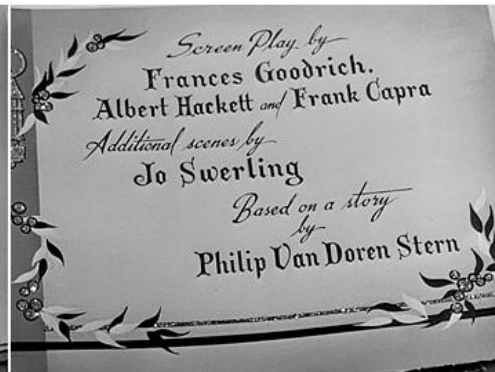 Screen Play by
Frances Goodrich,
Albert Hackett and Frank Capra
Additional scenes by
Jo Swerling
Based on a story
by
Philip Van Doren Stern